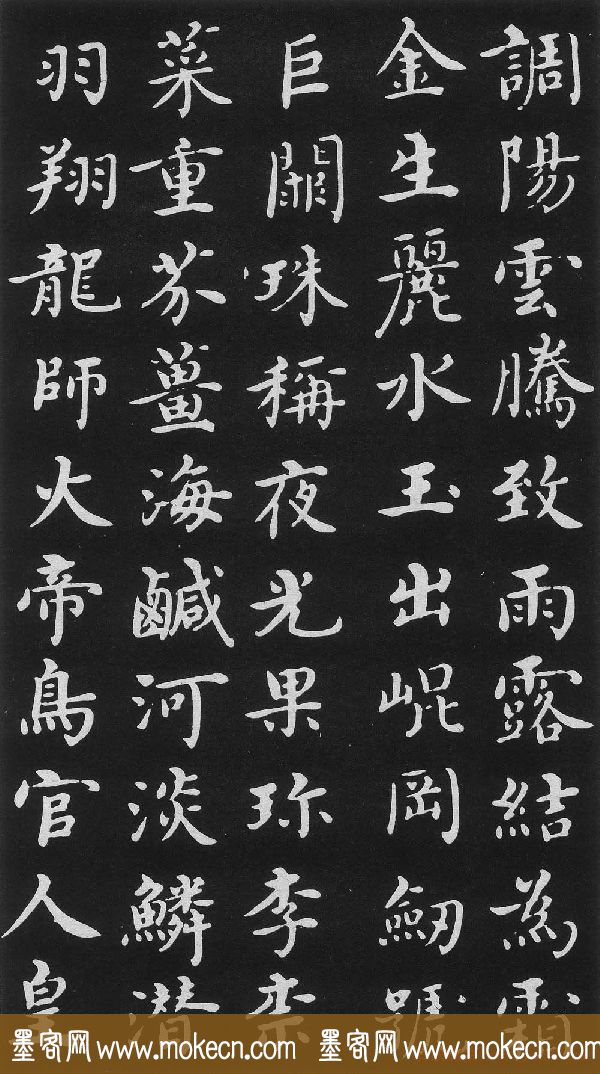 調陽雲騰致雨露結為霜
金生麗水玉出崐岡劔號
巨闕珠稱夜光果珎李柰
菜重芥薑海鹹河淡鱗潛
羽翔龍師火帝鳥官人皇
墨客网 www.mokecn.com 墨客网 www.mokecn.com